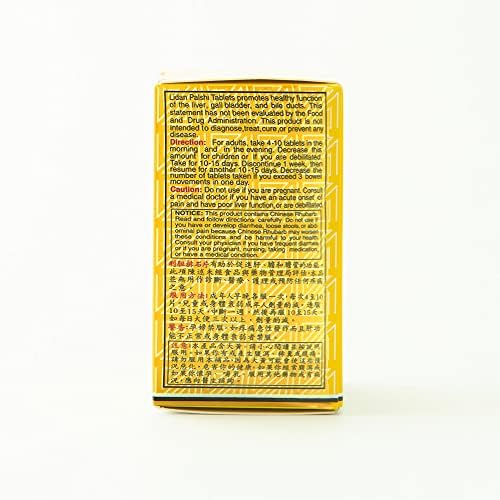 Lidan Paishi Tablets promotes healthy function
of the liver, gall bladder, and bile ducts. This
statement has not been evaluated by the Food
and Drug Administration. This product is not
intended to diagnose,treat,cure,or prevent any
disease.
Direction: For adults, take 4-10 tablets in the
morning and in the evening. Decrease this
amount for children or if you are debilitated.
Take for 10-15 days. Discontinue 1 week, then
resume for another 10-15 days. Decrease the
number of tablets taken if you exceed 3 bowel
movements in one day.
Caution: Do not use if you are pregnant. Consult
a medical doctor if you have an acute onset of
pain and have poor liver function, or are debilitated.
NOTICE: This product contains Chinese Rhubarb.
Read and follow directions carefully. Do not use if
you have or develop diarrhea, loose stools, or abd-
ominal pain because Chinese Rhubarb may worsen
these conditions and be harmful to your health.
Consult your physician if you have frequent diarrhea
or if you are pregnant, nursing, taking medication,
or have a medical condition.
利膽排石片有助於促進肝、膽和膽管的功能。
此項陳述未經食品與藥物管理局評估。本品
並無用作診斷、醫療、護理或預防任何疾病
之意。
服用方法:成人早晚各服一次,每次4至10
片,兒童或身體衰弱者成人劑量酌減。連服
10至15天,中斷一週,然後再服10至15天。
如每日大便三次以上,劑量酌減。
警告:孕婦禁服,如疼痛急性發作而且肝功
能不正常或身體衰弱者禁服。
注意:本產品含大黃。請小心閱讀並按說明
服用。如果你有或產生腹瀉、
服用本補品,因為大黃可能會使這些情
況惡化,危害你的健康。如果你經常腹瀉或
如果你懷孕、哺乳、服用其他藥物或有病
況,應向醫生諮詢。